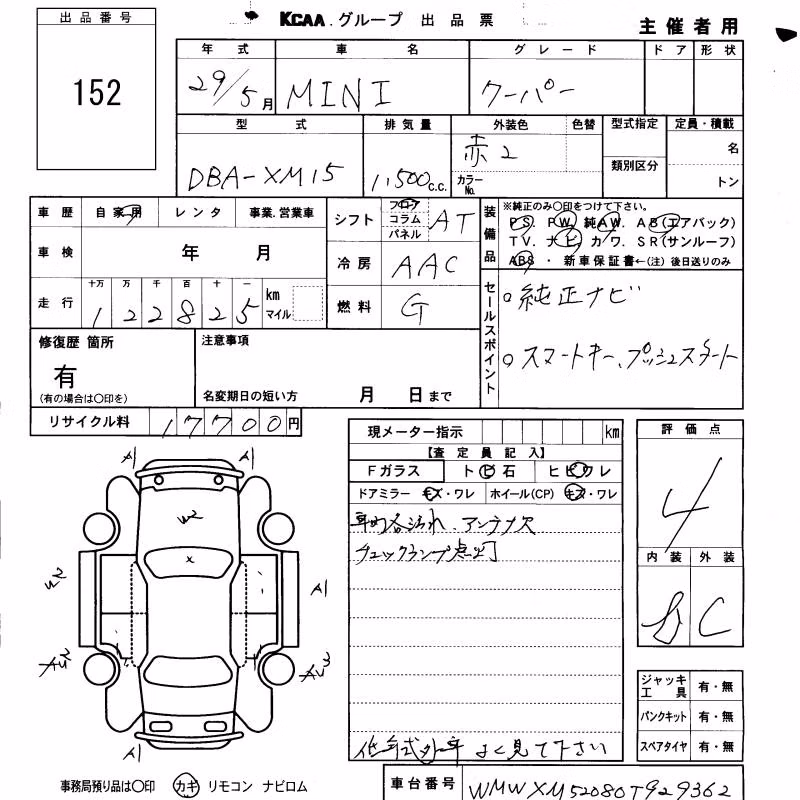 出品番号
152
KCAA.グループ 出品票
主催者用
年式 車名 グレード ドア 形状
29/5月 MINI クーパー
型式 排気量 外装色 色替 型式指定 定員・積載
DBA-XM15 1,500c.c. 赤2 カラーNo. 類別区分 名
トン
車歴 自家用 レンタ 事業.営業車
車検 年 月
走行 十万 万 千 百 十 一
122825 km マイル
シフト フロア コラム パネル AT
冷房 AAC
燃料 G
装備品 ※純正のみ〇印をつけて下さい。
PS. PW. 純AW. AB(エアバック)
TV. ナビ. カワ. SR(サンルーフ)
ABS・新車保証書←(注)後日送りのみ
セールスポイント
○純正ナビ
○スマートキー、プッシュスタート
修復歴 箇所
有
(有の場合は〇印を)
注意事項
名変期日の短い方 月 日まで
リサイクル料 17700円
現メーター指示 km
【査定員記入】
Fガラス トビ石 ヒビワレ
ドアミラー キズ・ワレ ホイール(CP) キズ・ワレ
車内各汚れ、アンテナ欠
チェックランプ点灯
低年式外車 よく見て下さい
評価点
4
内装 外装
C
A1 A1
W2
×
A1
A1 A1
ジャッキ工具 有・無
パンクキット 有・無
スペアタイヤ 有・無
事務局預り品は〇印 カギ リモコン ナビロム
車台番号 WMWXM52080T929362